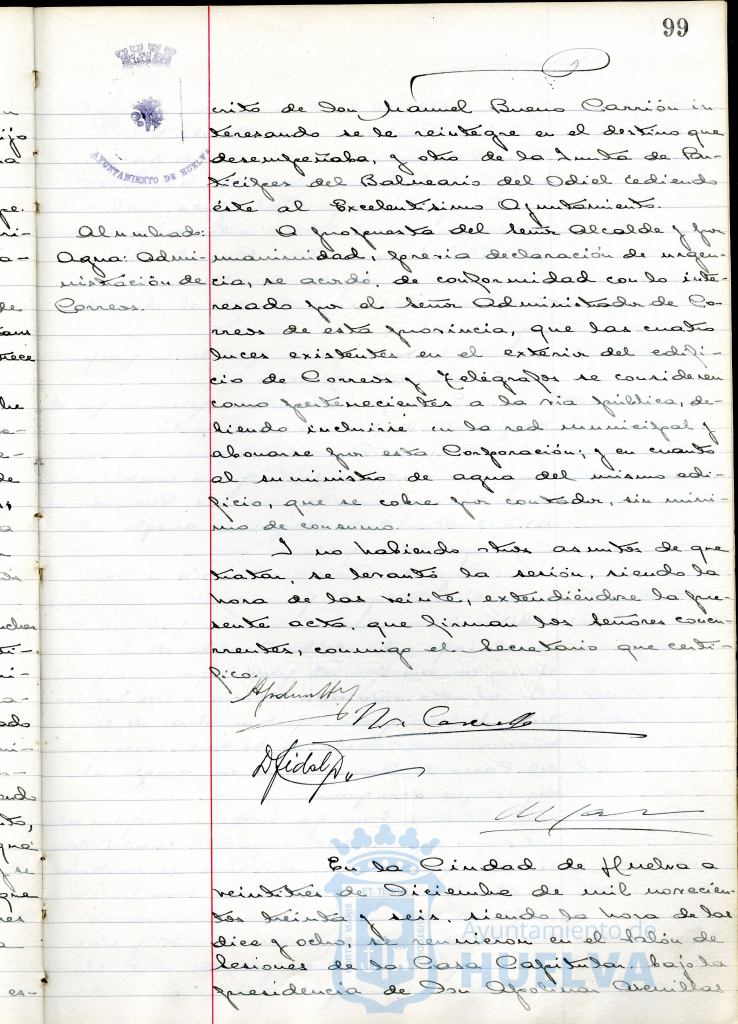 99
AYUNTAMIENTO DE HUELVA
crito de Don Manuel Bueno Carrión in-
teresando se le reintegre en el destino que
desempeñaba, y otro de la Junta de Par-
tícipes del Balneario del Odiel cediendo
éste al Excelentísimo Ayuntamiento.
Alumbrado:
Agua: Admi-
nistración de
Correos.
A propuesta del Señor Alcalde y por
unanimidad, previa declaración de urgen-
cia, se acordó, de conformidad con lo inte-
resado por el Señor Administrador de Co-
rreos de esta provincia, que las cuatro
luces existentes en el exterior del edifi-
cio de Correos y Telégrafos se consideren
como pertenecientes a la vía pública, de-
biendo incluirse en la red municipal y
abonarse por esta Corporación; y en cuanto
al suministro de agua del mismo edi-
ficio, que se cobre por contador, sin míni-
mo de consumo.
Y no habiendo otros asuntos de que
tratar, se levantó la sesión, siendo la
hora de las veinte, extendiéndose la pre-
sente acta, que firman los Señores concu-
rrentes, conmigo el Secretario que certi-
fico.
En la Ciudad de Huelva a
veintitrés de Diciembre de mil novecien-
tos treinta y seis, siendo la hora de las
diez y ocho, se reunieron en el Salón de
Sesiones de la Casa Capitular, bajo la
presidencia de Don Apolinar Arenillas
Ayuntamiento de
HUELVA